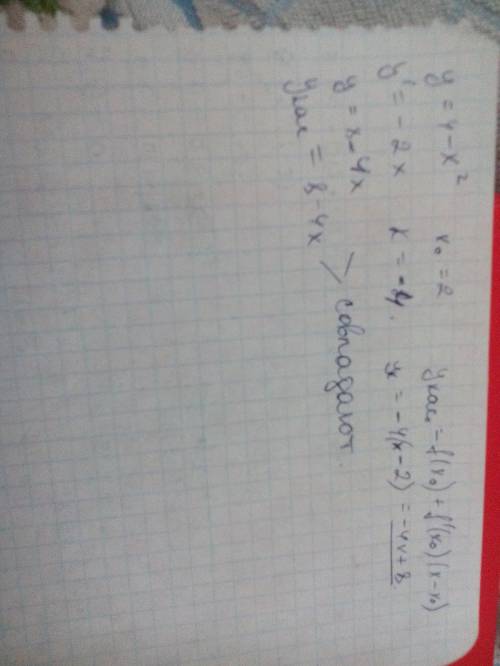 y = 4 - x² x₀ = 2 yкас = f(x₀) + f'(x₀)(x - x₀)
y' = -2x k = -4. yк = -4(x - 2) = -4x + 8
y = 8 - 4x
yкас = 8 - 4x > совпадают.